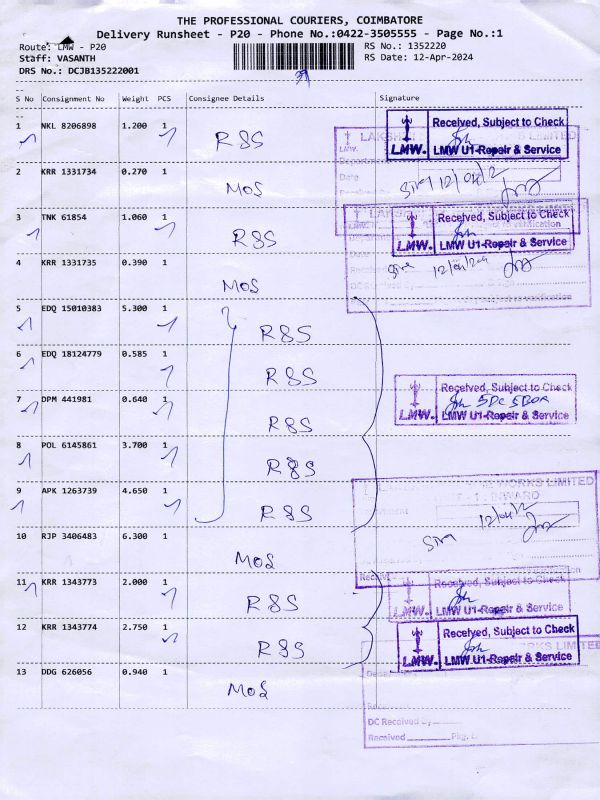 THE PROFESSIONAL COURIERS, COIMBATORE
Delivery Runsheet - P20 - Phone No.:0422-3505555 - Page No.:1
Route: LMW - P20
RS No.: 1352220
Staff: VASANTH
RS Date: 12-Apr-2024
DRS No.: DCJB135222001
S No Consignment No Weight PCS Consignee Details Signature
1 NKL 8206898 1.200 1 R&S
Received, Subject to Check
LMW. LMW U1-Repair & Service
2 KRR 1331734 0.270 1 MOS
3 TNK 61854 1.060 1 R&S
Received, Subject to Check
LMW. LMW U1-Repair & Service
4 KRR 1331735 0.390 1 MOS
5 EDQ 15010383 5.300 1 R&S
6 EDQ 18124779 0.585 1 R&S
7 DPM 441981 0.640 1 R&S
Received, Subject to Check
5DC 5BOX
LMW. LMW U1-Repair & Service
8 POL 6145861 3.700 1 R&S
9 APK 1263739 4.650 1 R&S
10 RJP 3406483 6.300 1 MOS
11 KRR 1343773 2.000 1 R&S
Received, Subject to Check
LMW. LMW U1-Repair & Service
12 KRR 1343774 2.750 1 R&S
Received, Subject to Check
LMW. LMW U1-Repair & Service
13 DDG 626056 0.940 1 MOS
DC Received By
Received Pkg.